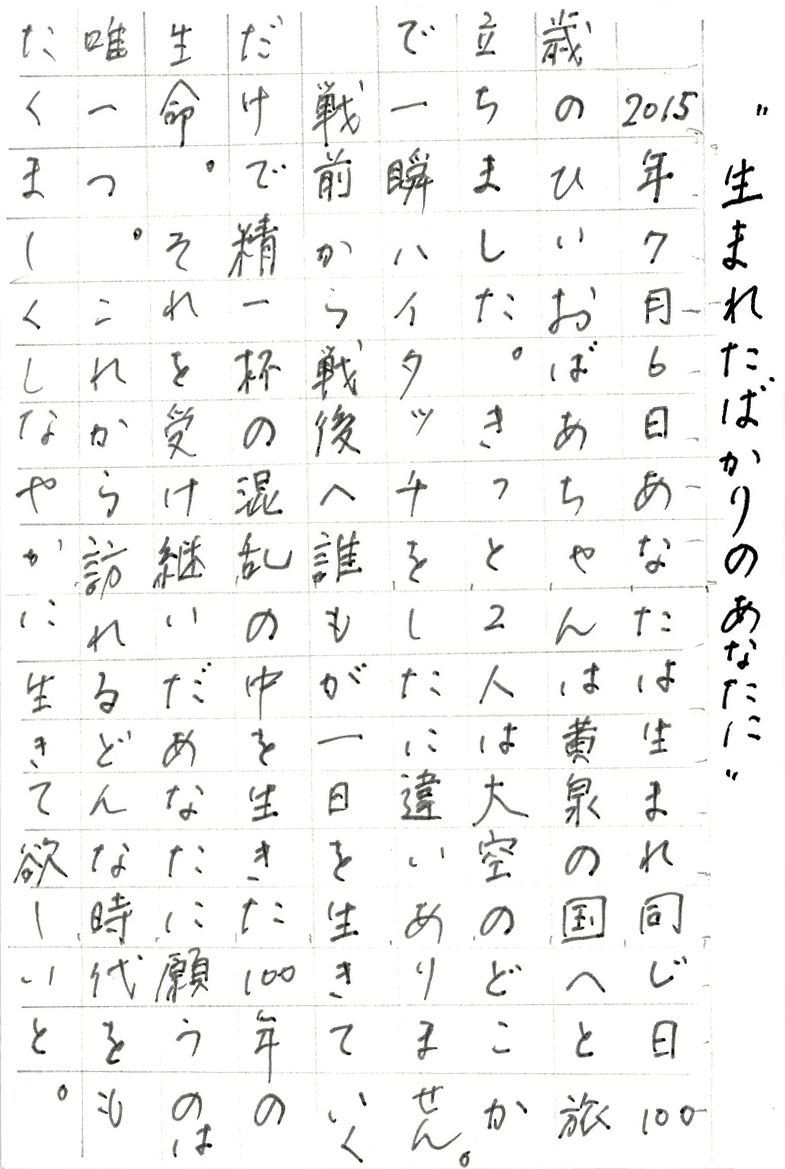 "生まれたばかりのあなたに"
2015年7月6日あなたは生まれ同じ日100
歳のひいおばあちゃんは黄泉の国へと旅
立ちました。きっと2人は大空のどこか
で一瞬ハイタッチをしたに違いありません。
戦前から戦後へ誰もが一日を生きていく
だけで精一杯の混乱の中を生きた100年の
生命。それを受け継いだめなたに願うのは
唯一つ。これから訪れるどんな時代をも
たくましくしなやかに生きて欲しいと。